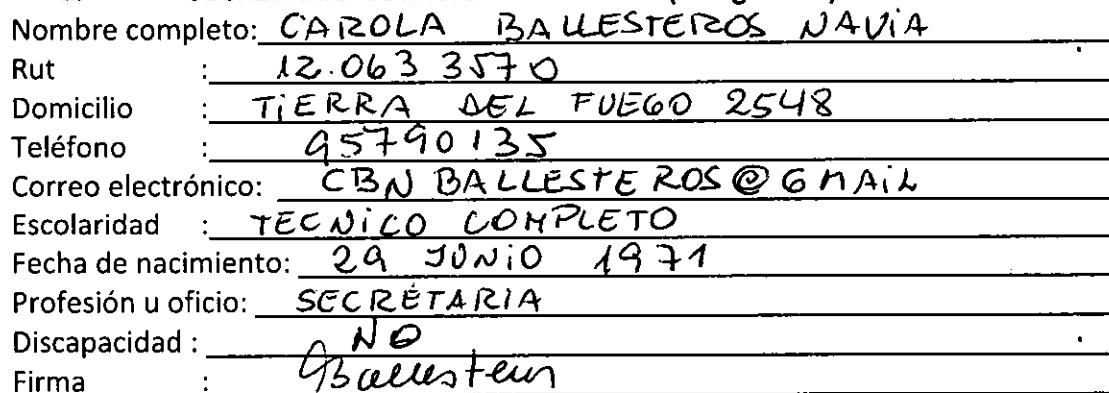 Nombre completo: CAROLA BALLESTEROS NAVIA
Rut : 12.063 357 0
Domicilio : TiERRA DEL FUEGO 2548
Teléfono : 95790135
Correo electrónico: CBN BALLESTEROS @ GMAiL
Escolaridad : TECNiCO COMPLETO
Fecha de nacimiento: 29 JUNiO 1971
Profesión u oficio: SECRÉTARIA
Discapacidad : NO
Firma : Ballesteros